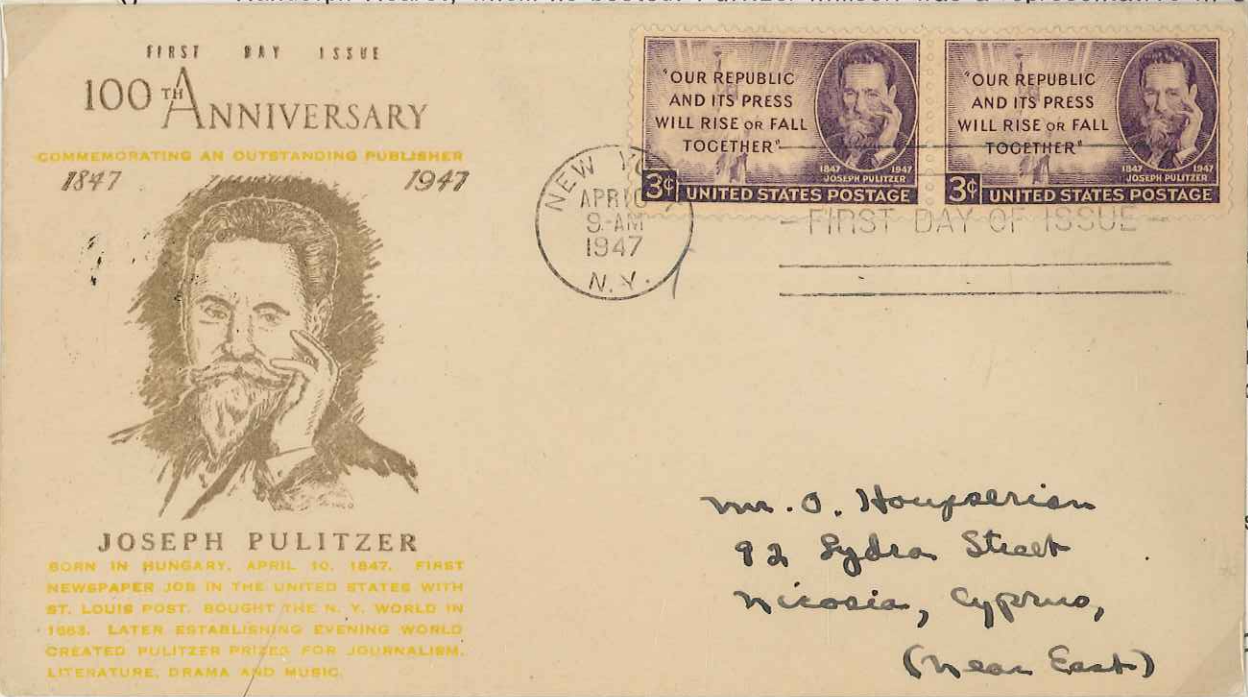 FIRST DAY ISSUE
100TH ANNIVERSARY
COMMEMORATING AN OUTSTANDING PUBLISHER
1847 1947
JOSEPH PULITZER
BORN IN HUNGARY, APRIL 10, 1847. FIRST
NEWSPAPER JOB IN THE UNITED STATES WITH
ST. LOUIS POST. BOUGHT THE N. Y. WORLD IN
1883. LATER ESTABLISHING EVENING WORLD
CREATED PULITZER PRIZES FOR JOURNALISM,
LITERATURE, DRAMA AND MUSIC.
"OUR REPUBLIC
AND ITS PRESS
WILL RISE OR FALL
TOGETHER"
1847 1947
JOSEPH PULITZER
3¢ UNITED STATES POSTAGE
"OUR REPUBLIC
AND ITS PRESS
WILL RISE OR FALL
TOGETHER"
1847 1947
JOSEPH PULITZER
3¢ UNITED STATES POSTAGE
NEW YO
APR 10
9-AM
1947
N.Y.
FIRST DAY OF ISSUE
Mr. O.
92 Lydra Street
Nicosia, Cyprus,
(Near East)